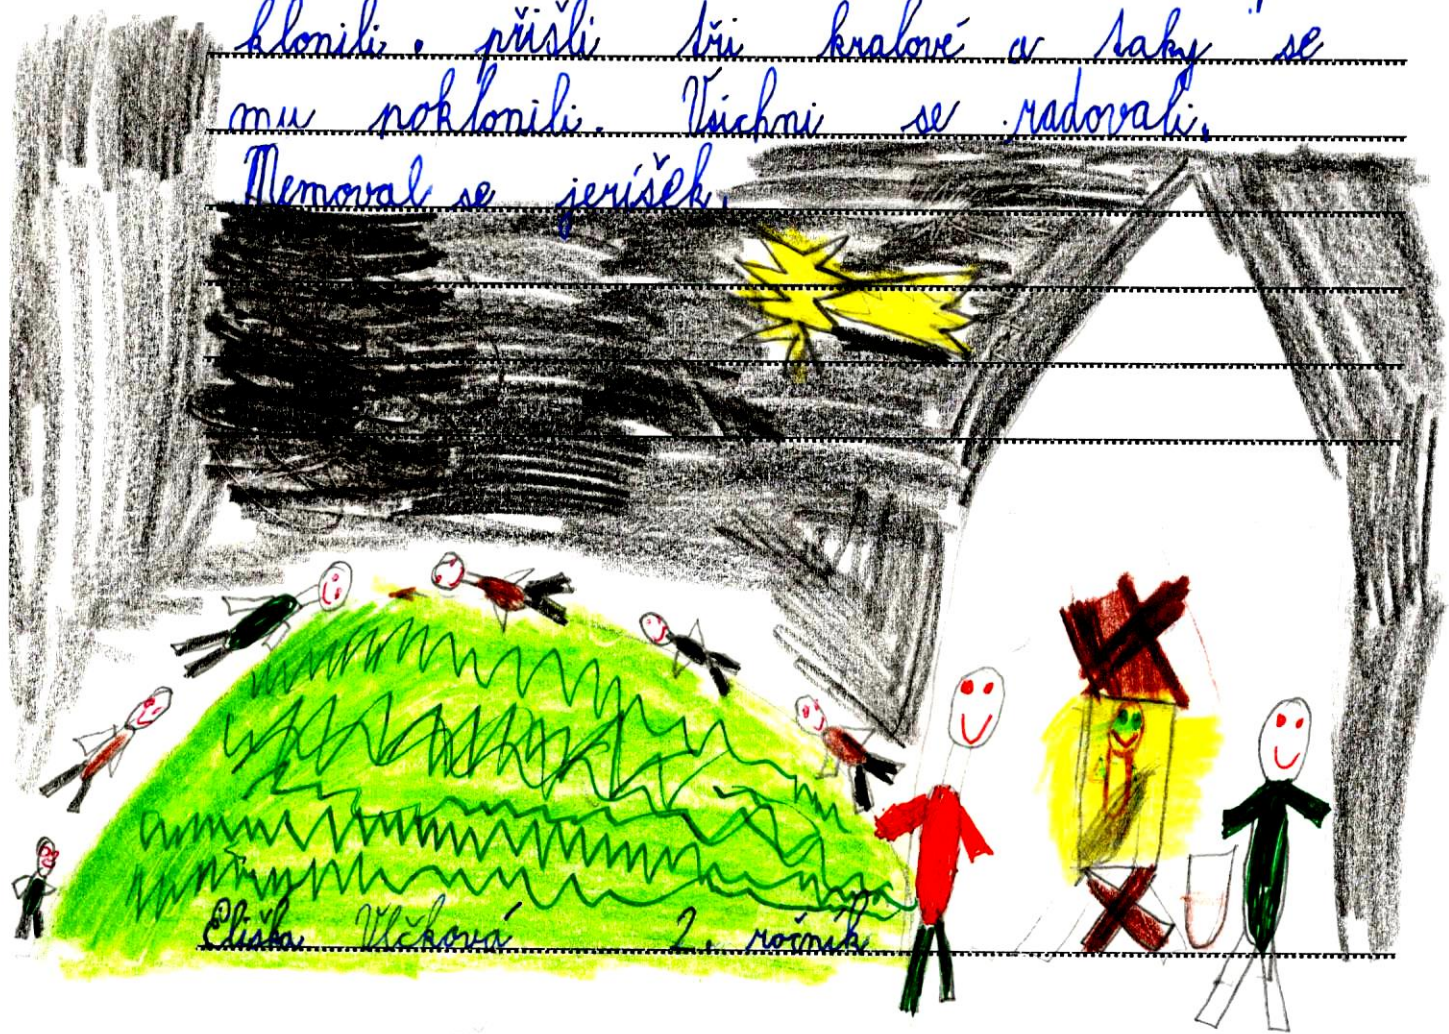 klonili. přišli tři kralové a taky se
mu poklonili. Všichni se radovali.
Memoval se jeríšek.
Eliška Vlčková 2. ročník